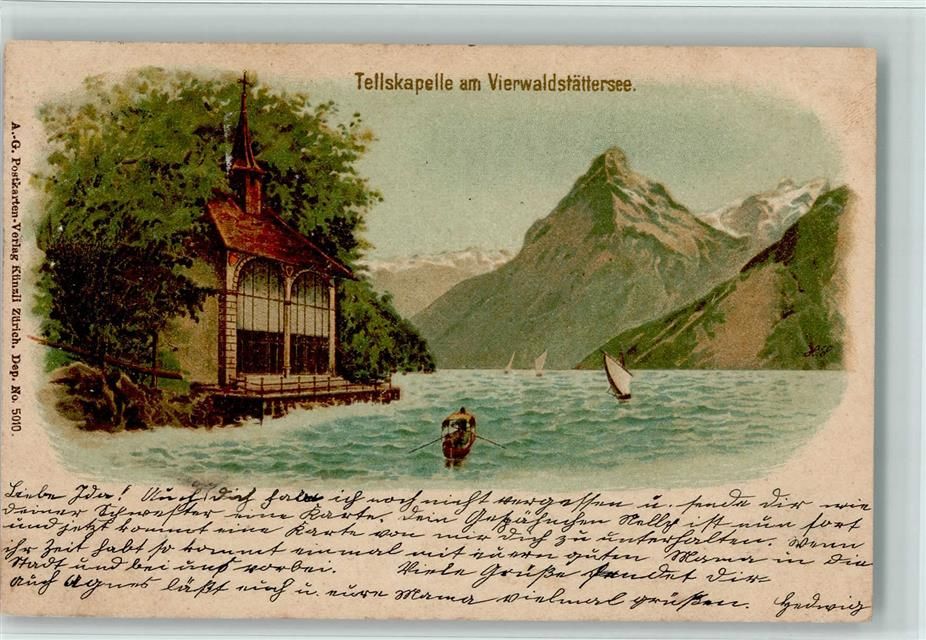 Tellskapelle am Vierwaldstättersee.
A.-G. Postkarten-Verlag Künzli Zürich. Dep. No. 5010.
Liebe Ida! Auch dich habe ich noch nicht vergessen u. sende dir wie
deiner Schwester eine Karte. Dein Gespähnchen Nelly ist nun fort
und jetzt kommt eine Karte von mir dich zu unterhalten. Wenn
ihr Zeit habt so kommt einmal mit euern guten Mama in die
Stadt und bei uns vorbei. Viele Grüße sendet dir
Auch Agnes läßt euch u. eure Mama vielmal grüßen. Hedwig